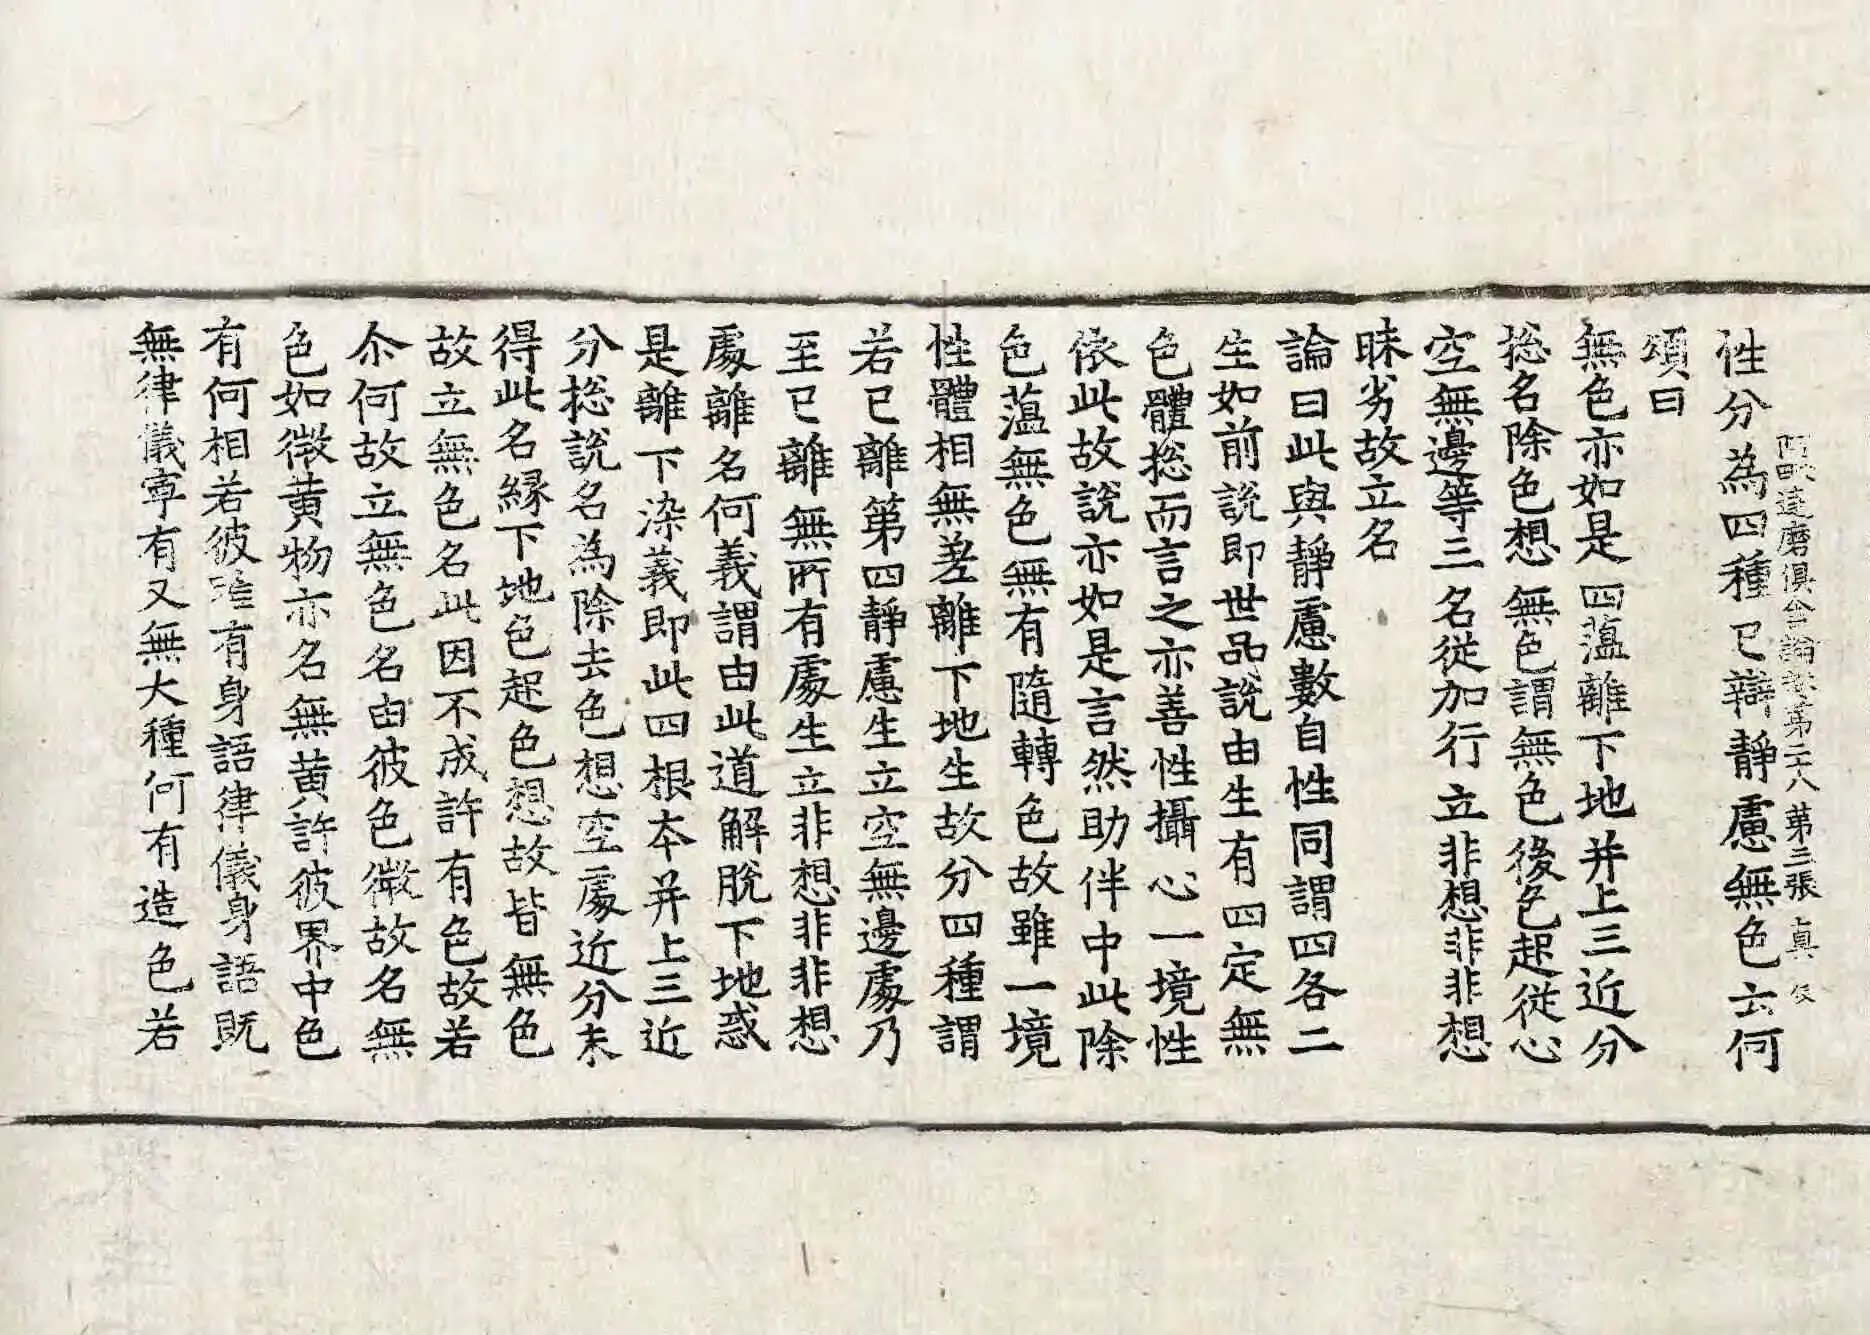 阿毗達磨俱舍論卷第二十八 第三張 真
性分為四種已辯靜慮無色云何
頌曰
無色亦如是四蕰離下地并上三近分
捴名除色想無色謂無色後色起從心
空無邊等三名從加行立非想非非想
昧劣故立名
論曰此與靜慮數自性同謂四各二
生如前說即世品說由生有四定無
色體捴而言之亦善性攝心一境性
依此故說亦如是言然助伴中此除
色蕰無色無有隨轉色故雖一境
性體相無差離下地生故分四種謂
若已離第四靜慮生立空無邊處乃
至已離無所有處生立非想非非想
處離名何義謂由此道解脫下地惑
是離下染義即此四根本并上三近
分捴說名為除去色想空處近分未
得此名緣下地色起色想故皆無色
故立無色名此因不成許有色故若
尒何故立無色名由彼色微故名無
色如微黃物亦名無黃許彼界中色
有何相若彼唯有身語律儀身語既
無律儀寧有又無大種何有造色若